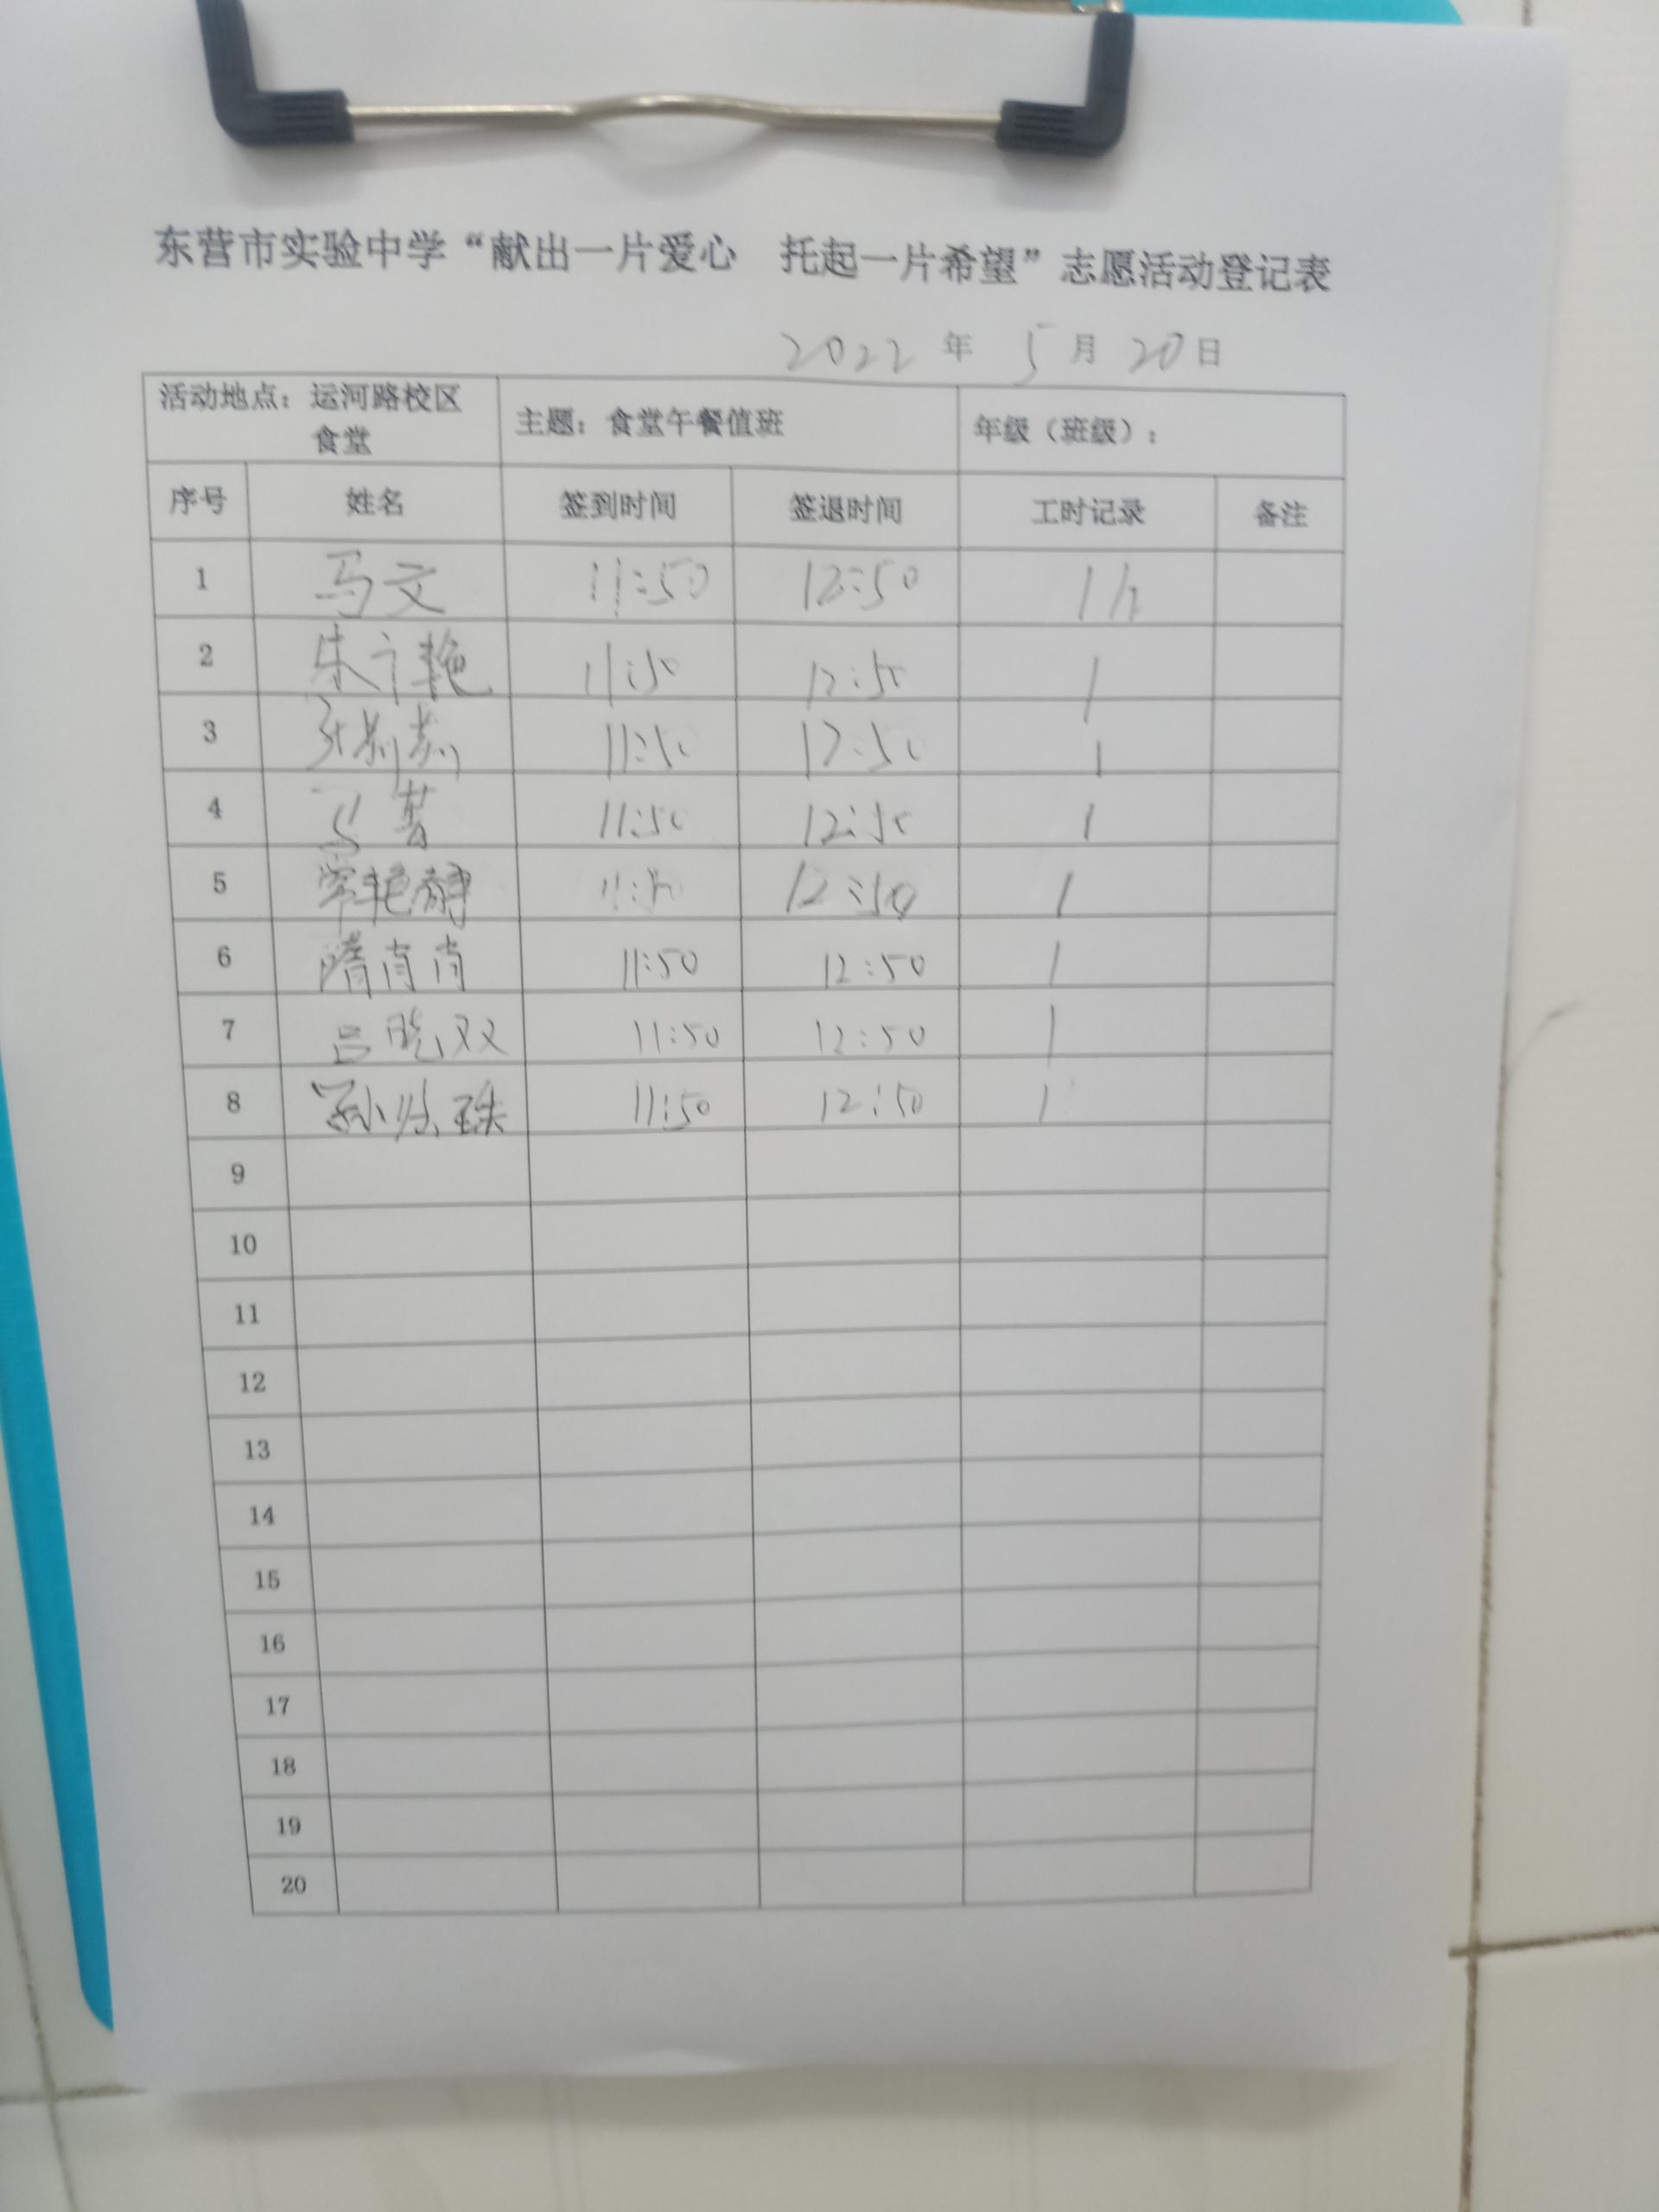 东营市实验中学“献出一片爱心 托起一片希望”志愿活动登记表
2022 年 5 月 20 日
活动地点：运河路校区食堂 主题：食堂午餐值班 年级（班级）：
序号 姓名 签到时间 签退时间 工时记录 备注
1 马文 11:50 12:50 1h
2 11:50 12:50 1
3 11:50 12:50 1
4 11:50 12:50 1
5 11:50 12:50 1
6 隋肖肖 11:50 12:50 1
7 吕晓双 11:50 12:50 1
8 11:50 12:50 1
9
10
11
12
13
14
15
16
17
18
19
20